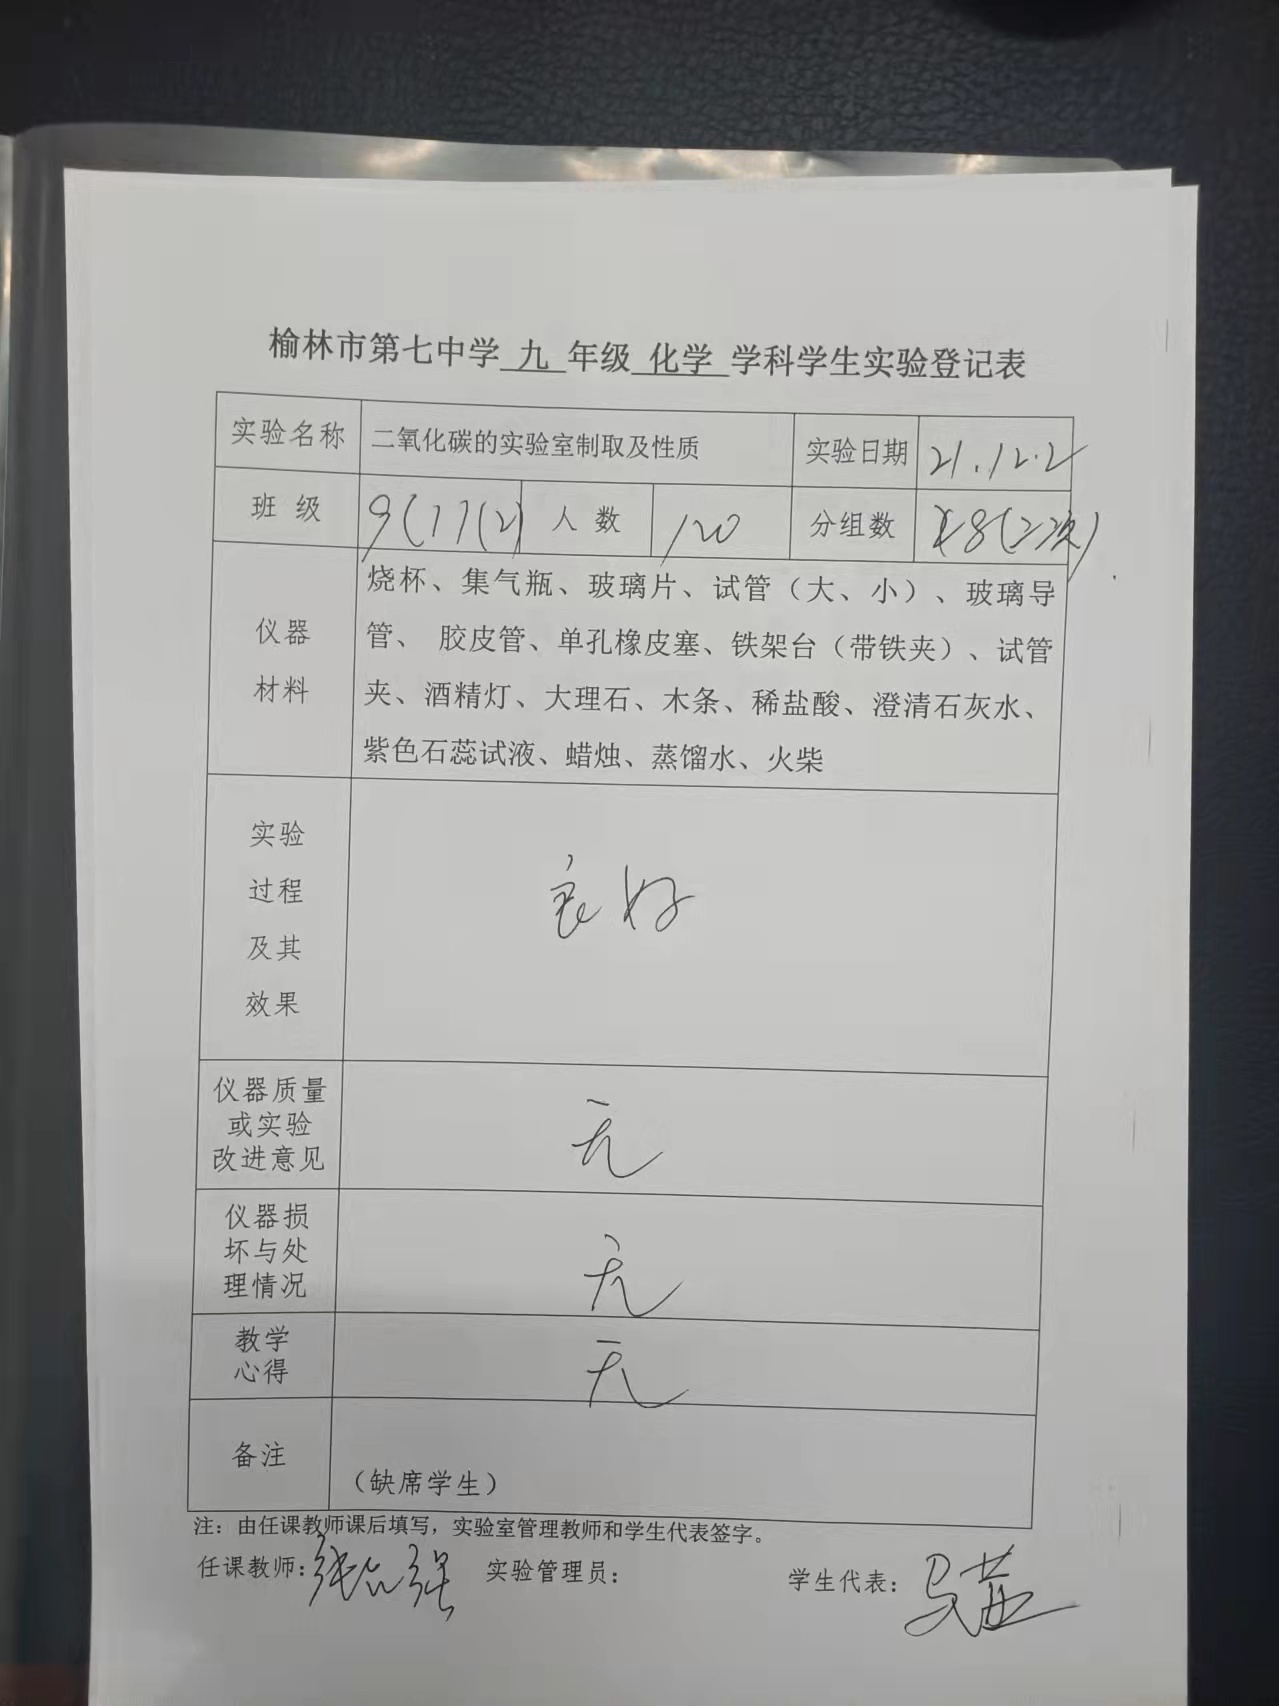 榆林市第七中学 九 年级 化学 学科学生实验登记表
实验名称 二氧化碳的实验室制取及性质 实验日期 21.12.2
班 级 9(1)(2) 人 数 120 分组数 8(2次)
仪器
材料
烧杯、集气瓶、玻璃片、试管（大、小）、玻璃导
管、 胶皮管、单孔橡皮塞、铁架台（带铁夹）、试管
夹、酒精灯、大理石、木条、稀盐酸、澄清石灰水、
紫色石蕊试液、蜡烛、蒸馏水、火柴
实验
过程
及其
效果
良好
仪器质量
或实验
改进意见
无
仪器损
坏与处
理情况
无
教学
心得
无
备注
（缺席学生）
注：由任课教师课后填写，实验室管理教师和学生代表签字。
任课教师： 实验管理员： 学生代表：